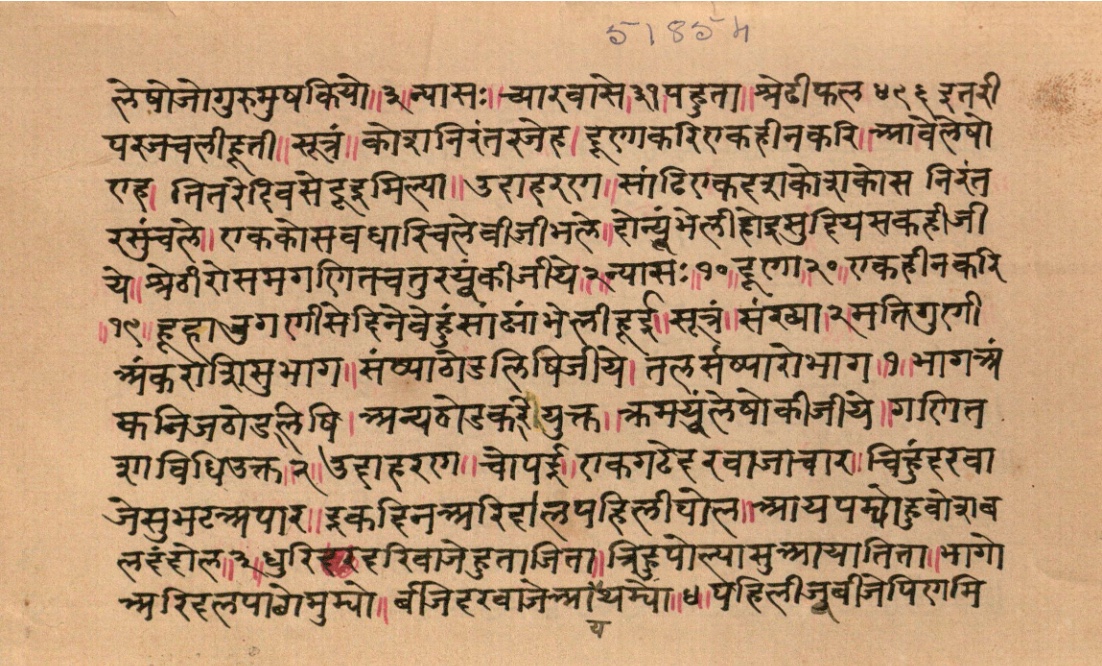 51854
लेषोजोगुरुमुषकियो॥३॥न्यासः॥च्यारवासे३१पहुता॥श्रेढीफल४९६इतरी
परजचलीहूती॥सूत्रं॥कोशनिरंतरजेह।दूणकरिएकहीनकरि॥आवेलेषो
एह।तितरेदिवसेदूइमिल्या॥उदाहरण॥सांढिएकदशकोशकोस निरंत
रसुंचले॥एककोसवधारिचलेबीजीभले॥दोन्यूंभेलीहोइसुदियसकहीजी
ये॥श्रेठीरोसमगणितचतुरयूंकीजीये२न्यासः॥१०॥दूणा२०॥एकहीनकरि
॥१९॥हूहा उगणीसेदिनेवेहुंसांढ्यांभेलीहूई॥सूत्रं॥संख्या२मतिगुणी
अंकरोशिसुभाग॥संष्याठोडलिषिजीये।तलसंष्यारोभाग॥१॥भागअं
कनिजठोडलेषि।अन्यठोडकरेयुक्त॥क्रमयूंलेषोकीजीये॥गणित
शविधिउक्त॥२॥उदाहरण॥चोपई॥एकगढेदरवाजाचार॥चिहुंदरवा
जेसुभटअपार॥इकदिनअरिदलपहिलीपोल॥आयपड्योहुवोशब
लहंदोल॥३॥धुरिदरिवाजेहुताजिता॥त्रिहुपोल्यासुआयातिता॥भागो
अरिदलपाछोमुड्यो॥बीजेदरवाजेआयड्यो॥४॥पहिलीजूबीजेपिणमि
य